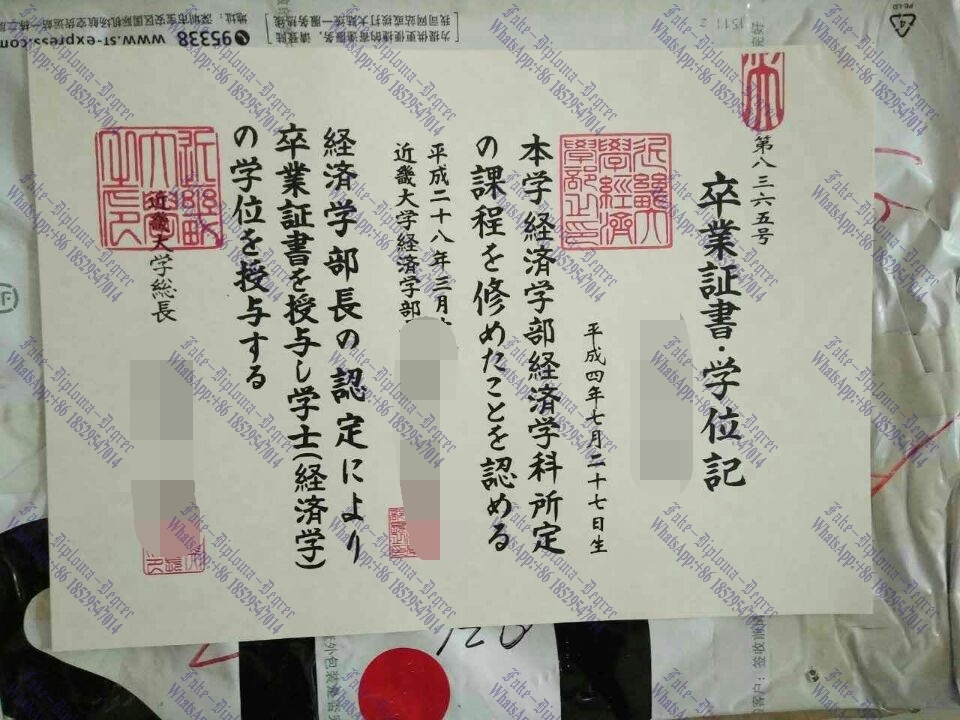 第八三六五号
卒業証書・学位記
平成四年七月二十七日生
本学経済学部経済学科所定
の課程を修めたことを認める
平成二十八年三月
近畿大学経済学部
経済学部長の認定により
卒業証書を授与し学士(経済学)
の学位を授与する
近畿大学総長
近畿大學經済學部之印
95338 www.sf-express.com
Fake-Diploma-Degree
WhatsApp:+86 18529547014